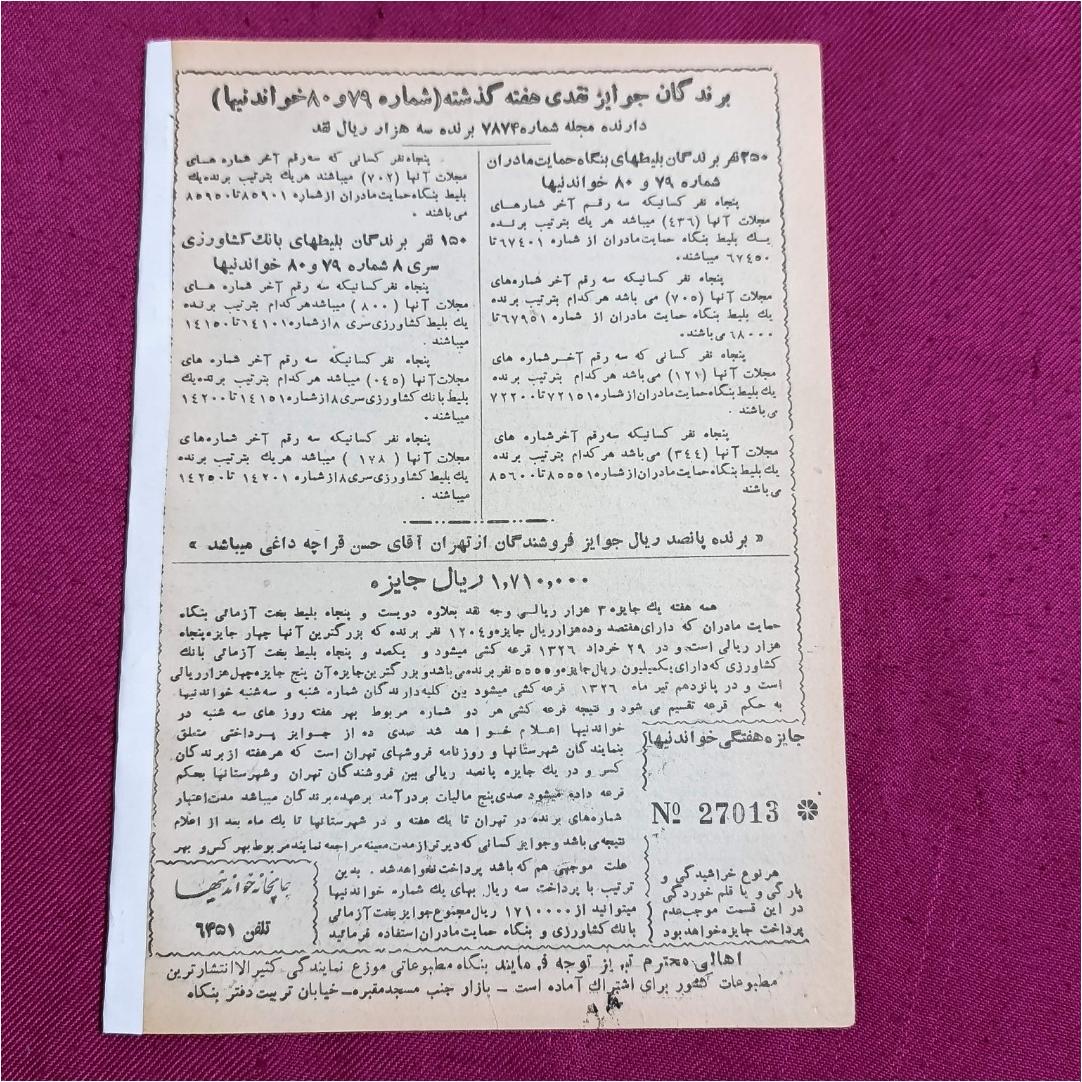 برندگان جوایز نقدی هفته گذشته (شماره ۷۹ و ۸۰ خواندنیها)
دارنده مجله شماره ۷۸۷۴ برنده سه هزار ریال نقد
۲۵۰ نفر برندگان بلیطهای بنگاه حمایت مادران
شماره ۷۹ و ۸۰ خواندنیها
پنجاه نفر کسانیکه سه رقم آخر شمارهای
مجلات آنها (۴۳۶) میباشد هر یك بترتیب برنده
یك بلیط بنگاه حمایت مادران از شماره ۶۷۴۰۱ تا
۶۷۴۵۰ میباشند.
پنجاه نفر کسانیکه سه رقم آخر شماره‌های
مجلات آنها (۷۰۵) می باشد هر کدام بترتیب برنده
یك بلیط بنگاه حمایت مادران از شماره ۶۷۹۵۱ تا
۶۸۰۰۰ می باشند.
پنجاه نفر کسانی که سه رقم آخر شماره های
مجلات آنها (۱۲۱) می باشد هر کدام بترتیب برنده
یك بلیط بنگاه حمایت مادران از شماره ۷۲۱۵۱ تا ۷۲۲۰۰
می باشند.
پنجاه نفر کسانیکه سه رقم آخر شماره های
مجلات آنها (۳۴۴) می باشد هر کدام بترتیب برنده
یك بلیط بنگاه حمایت مادران از شماره ۸۵۵۵۱ تا ۸۵۶۰۰
می باشند
پنجاه نفر کسانی که سه رقم آخر شماره های
مجلات آنها (۷۰۲) میباشند هر یك بترتیب برنده یك
بلیط بنگاه حمایت مادران از شماره ۸۵۹۰۱ تا ۸۵۹۵۰
می باشند.
۱۵۰ نفر برندگان بلیطهای بانك کشاورزی
سری ۸ شماره ۷۹ و ۸۰ خواندنیها
پنجاه نفر کسانیکه سه رقم آخر شماره های
مجلات آنها (۸۰۰) میباشد هر کدام بترتیب برنده
یك بلیط کشاورزی سری ۸ از شماره ۱۴۱۰۱ تا ۱۴۱۵۰
میباشند.
پنجاه نفر کسانیکه سه رقم آخر شماره های
مجلات آنها (۰۴۵) میباشد هر کدام بترتیب برنده یك
بلیط بانك کشاورزی سری ۸ از شماره ۱۴۱۵۱ تا ۱۴۲۰۰
میباشند.
پنجاه نفر کسانیکه سه رقم آخر شماره‌های
مجلات آنها (۱۷۸) میباشد هر یك بترتیب برنده
یك بلیط کشاورزی سری ۸ از شماره ۱۴۲۰۱ تا ۱۴۲۵۰
میباشند.
« برنده پانصد ریال جوایز فروشندگان از تهران آقای حسن قراچه داغی میباشد »
۱,۷۱۰,۰۰۰ ریال جایزه
همه هفته یك جایزه ۳ هزار ریالی وجه نقد بعلاوه دویست و پنجاه بلیط بخت آزمائی بنگاه
حمایت مادران که دارای هفتصد و ده هزار ریال جایزه و ۱۲۰۴ نفر برنده که بزرگترین آنها چهار جایزه پنجاه
هزار ریالی است و در ۲۹ خرداد ۱۳۲۶ قرعه کشی میشود و یکصد و پنجاه بلیط بخت آزمائی بانك
کشاورزی که دارای یکمیلیون ریال جایزه و ۵۵۵۵ نفر برنده می باشد و بزرگترین جایزه آن پنج جایزه چهل هزار ریالی
است و در پانزدهم تیر ماه ۱۳۲۶ قرعه کشی میشود بین کلیه دارندگان شماره شنبه و سه شنبه خواندنیها
به حکم قرعه تقسیم می شود و نتیجه قرعه کشی هر دو شماره مربوط بهر هفته روز های سه شنبه در
خواندنیها اعلام خواهد شد صدی ده از جوایز پرداختی متعلق
بنمایندگان شهرستانها و روزنامه فروشهای تهران است که هر هفته از برندگان
کسر و در یك جایزه پانصد ریالی بین فروشندگان تهران و شهرستانها بحکم
قرعه داده میشود صدی پنج مالیات بر درآمد بر عهده برندگان میباشد مدت اعتبار
شماره‌های برنده در تهران تا یك هفته و در شهرستانها تا یك ماه بعد از اعلام
نتیجه می باشد و جوایز کسانی که دیرتر از مدت معینه مراجعه نمایند مربوط بهر کس و بهر
علت موجهی هم که باشد پرداخت نخواهد شد. بدین
ترتیب با پرداخت سه ریال بهای یك شماره خواندنیها
میتوانید از ۱۷۱۰۰۰۰ ریال مجموع جوایز بخت آزمائی
بانك کشاورزی و بنگاه حمایت مادران استفاده فرمائید
جایزه هفتگی خواندنیها
Nº 27013
هر نوع خراشیدگی و
پارگی و یا قلم خوردگی
در این قسمت موجب عدم
پرداخت جایزه خواهد بود
چاپخانه خواندنیها
تلفن ۶۴۵۱
اهالی محترم تبریز توجه فرمایند بنگاه مطبوعاتی موزع نمایندگی کثیرالانتشارترین
مطبوعات کشور برای اشتراك آماده است – بازار جنب مسجد مقبره – خیابان تربیت دفتر بنگاه